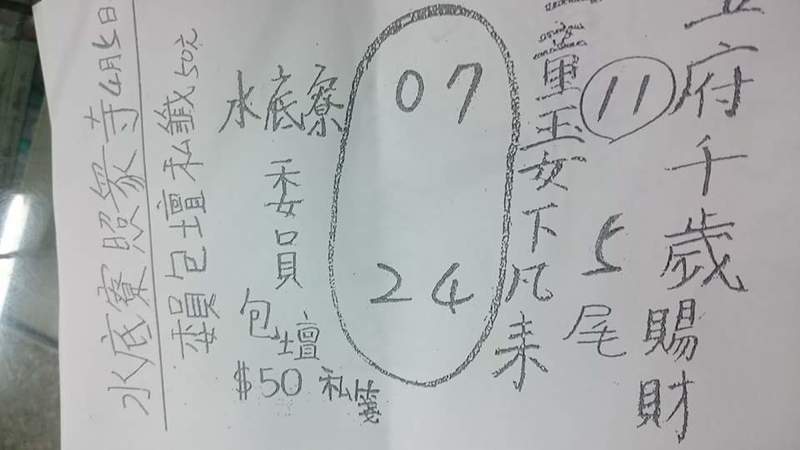 府千歲賜財
11
5尾
童玉女下凡來
07
24
水底寮
委員
包壇
$50 私箋
委員包壇私籤50元
水底寮照眾寺4月5日